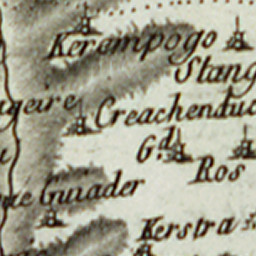 Kerempogo
Stang
Creachenduc
Gd.
Ros
Guiader
Kerstra